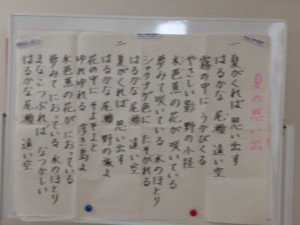 夏の思い出
一
夏がくれば 思い出す
はるかな 尾瀬 遠い空
霧の中に うかびくる
やさしい影 野の小径
水芭蕉の 花が 咲いている
夢みて咲いている 水のほとり
シャクナゲ色に たそがれる
はるかな 尾瀬 遠い空
二
夏がくれば 思い出す
はるかな 尾瀬 野の旅よ
花の中に そよそよと
ゆれゆれる 浮き島よ
水芭蕉の 花が におっている
夢みて におっている 水のほとり
まなこつぶれば なつかしい
はるかな 尾瀬 遠い空